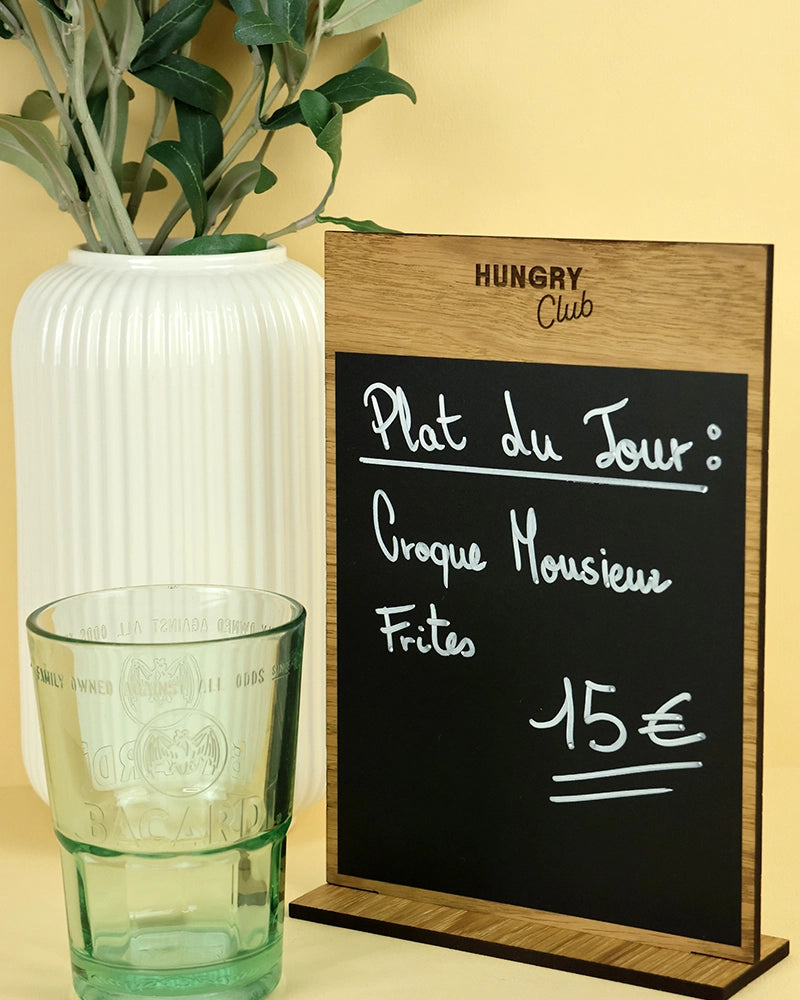 HUNGRY
Club
Plat du Jour :
Croque Monsieur
Frites
15€
FAMILY OWNED AGAINST ALL ODDS
BACARDI